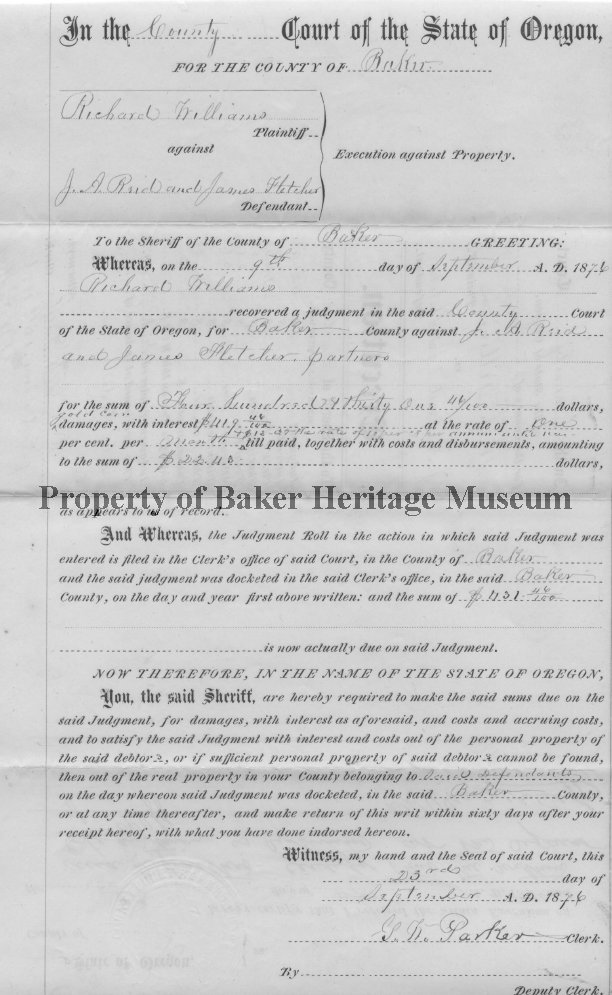 In the County Court of the State of Oregon,
FOR THE COUNTY OF Baker
Richard Williams
Plaintiff
against
Execution against Property.
J. A. Reid and James Fletcher
Defendant
To the Sheriff of the County of Baker GREETING:
Whereas, on the 9th day of September A. D. 1876
Richard Williams
recovered a judgment in the said County Court
of the State of Oregon, for Baker County against J. A. Reid
and James Fletcher partners
for the sum of Four hundred & thirty one 46/100 dollars,
Gold coin
damages, with interest $419 46/100 at the rate of one
per cent. per month till paid, together with costs and disbursements, amounting
to the sum of $22.45 dollars,
Property of Baker Heritage Museum
as appears to us of record.
And Whereas, the Judgment Roll in the action in which said Judgment was
entered is filed in the Clerk's office of said Court, in the County of Baker
and the said judgment was docketed in the said Clerk's office, in the said Baker
County, on the day and year first above written: and the sum of $431 46/100
is now actually due on said Judgment.
NOW THEREFORE, IN THE NAME OF THE STATE OF OREGON,
You, the said Sheriff, are hereby required to make the said sums due on the
said Judgment, for damages, with interest as aforesaid, and costs and accruing costs,
and to satisfy the said Judgment with interest and costs out of the personal property of
the said debtors, or if sufficient personal property of said debtors cannot be found,
then out of the real property in your County belonging to said defendants
on the day whereon said Judgment was docketed, in the said Baker County,
or at any time thereafter, and make return of this writ within sixty days after your
receipt hereof, with what you have done indorsed hereon.
Witness, my hand and the Seal of said Court, this
23rd day of
September A. D. 1876
Parker Clerk.
By
Deputy Clerk.